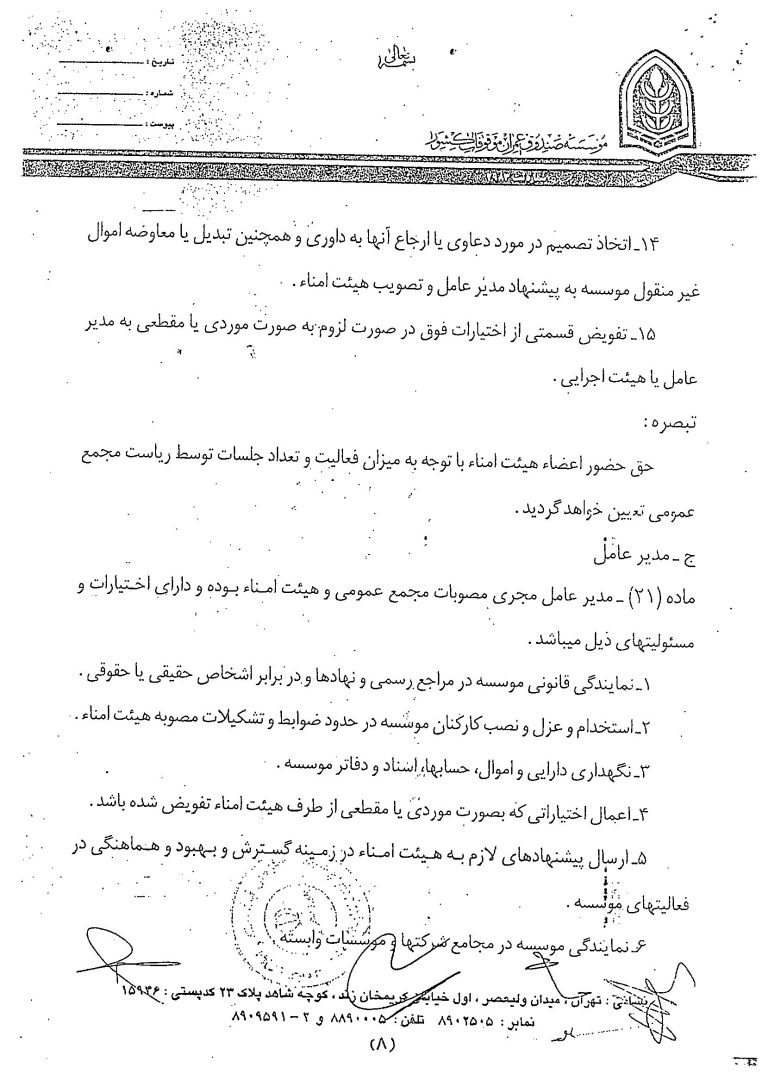 بسمه تعالی
تاریخ :
شماره :
پیوست :
مؤسسه صندوق عمران موقوفات کشور
۱۴ـ اتخاذ تصمیم در مورد دعاوی یا ارجاع آنها به داوری و همچنین تبدیل یا معاوضه اموال
غیر منقول موسسه به پیشنهاد مدیر عامل و تصویب هیئت امناء .
۱۵ـ تفویض قسمتی از اختیارات فوق در صورت لزوم به صورت موردی یا مقطعی به مدیر
عامل یا هیئت اجرایی .
تبصره :
حق حضور اعضاء هیئت امناء با توجه به میزان فعالیت و تعداد جلسات توسط ریاست مجمع
عمومی تعیین خواهد گردید .
ج ـ مدیر عامل
ماده (۲۱) ـ مدیر عامل مجری مصوبات مجمع عمومی و هیئت امناء بوده و دارای اختیارات و
مسئولیتهای ذیل میباشد .
۱ـ نمایندگی قانونی موسسه در مراجع رسمی و نهادها و در برابر اشخاص حقیقی یا حقوقی .
۲ـ استخدام و عزل و نصب کارکنان موسسه در حدود ضوابط و تشکیلات مصوبه هیئت امناء .
۳ـ نگهداری دارایی و اموال، حسابها، اسناد و دفاتر موسسه .
۴ـ اعمال اختیاراتی که بصورت موردی یا مقطعی از طرف هیئت امناء تفویض شده باشد .
۵ـ ارسال پیشنهادهای لازم به هیئت امناء در زمینه گسترش و بهبود و هماهنگی در
فعالیتهای موسسه .
۶ـ نمایندگی موسسه در مجامع شرکتها و موسسات وابسته
نشانی : تهران ، میدان ولیعصر ، اول خیابان کریمخان زند ، کوچه شاهد پلاک ۲۳ کدپستی : ۱۵۹۴۶
نمابر : ۸۹۰۲۵۰۵ تلفن : ۸۸۹۰۰۰۵ و ۲ - ۸۹۰۹۵۹۱
(۸)